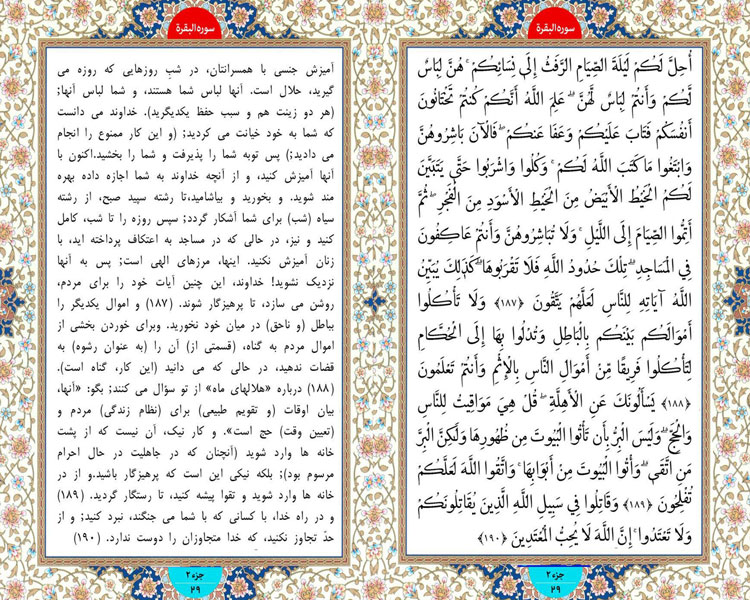 سوره البقرة
أُحِلَّ لَكُمْ لَيْلَةَ الصِّيَامِ الرَّفَثُ إِلَى نِسَائِكُمْ ۚ هُنَّ لِبَاسٌ
لَّكُمْ وَأَنتُمْ لِبَاسٌ لَّهُنَّ ۗ عَلِمَ اللَّهُ أَنَّكُمْ كُنتُمْ تَخْتَانُونَ
أَنفُسَكُمْ فَتَابَ عَلَيْكُمْ وَعَفَا عَنكُمْ ۖ فَالْآنَ بَاشِرُوهُنَّ
وَابْتَغُوا مَا كَتَبَ اللَّهُ لَكُمْ ۚ وَكُلُوا وَاشْرَبُوا حَتَّى يَتَبَيَّنَ
لَكُمُ الْخَيْطُ الْأَبْيَضُ مِنَ الْخَيْطِ الْأَسْوَدِ مِنَ الْفَجْرِ ۖ ثُمَّ
أَتِمُّوا الصِّيَامَ إِلَى اللَّيْلِ ۚ وَلَا تُبَاشِرُوهُنَّ وَأَنتُمْ عَاكِفُونَ
فِي الْمَسَاجِدِ ۗ تِلْكَ حُدُودُ اللَّهِ فَلَا تَقْرَبُوهَا ۗ كَذَٰلِكَ يُبَيِّنُ
اللَّهُ آيَاتِهِ لِلنَّاسِ لَعَلَّهُمْ يَتَّقُونَ ﴿۱۸۷﴾ وَلَا تَأْكُلُوا
أَمْوَالَكُم بَيْنَكُم بِالْبَاطِلِ وَتُدْلُوا بِهَا إِلَى الْحُكَّامِ
لِتَأْكُلُوا فَرِيقًا مِّنْ أَمْوَالِ النَّاسِ بِالْإِثْمِ وَأَنتُمْ تَعْلَمُونَ
﴿۱۸۸﴾ يَسْأَلُونَكَ عَنِ الْأَهِلَّةِ ۖ قُلْ هِيَ مَوَاقِيتُ لِلنَّاسِ
وَالْحَجِّ ۗ وَلَيْسَ الْبِرُّ بِأَن تَأْتُوا الْبُيُوتَ مِن ظُهُورِهَا وَلَٰكِنَّ الْبِرَّ
مَنِ اتَّقَى ۗ وَأْتُوا الْبُيُوتَ مِنْ أَبْوَابِهَا ۚ وَاتَّقُوا اللَّهَ لَعَلَّكُمْ
تُفْلِحُونَ ﴿۱۸۹﴾ وَقَاتِلُوا فِي سَبِيلِ اللَّهِ الَّذِينَ يُقَاتِلُونَكُمْ
وَلَا تَعْتَدُوا ۚ إِنَّ اللَّهَ لَا يُحِبُّ الْمُعْتَدِينَ ﴿۱۹۰﴾
جزء ۲
۲۹
سوره البقرة
آمیزش جنسی با همسرانتان، در شب روزهایی که روزه می
گیرید، حلال است. آنها لباس شما هستند، و شما لباس آنها؛
(هر دو زینت هم و سبب حفظ یکدیگرید). خداوند می دانست
که شما به خود خیانت می کردید؛ (و این کار ممنوع را انجام
می دادید؛) پس توبه شما را پذیرفت و شما را بخشید.اکنون با
آنها آمیزش کنید، و از آنچه خداوند به شما اجازه داده بهره
مند شوید. و بخورید و بیاشامید،تا رشته سپید صبح، از رشته
سیاه (شب) برای شما آشکار گردد؛ سپس روزه را تا شب، کامل
کنید و نیز، در حالی که در مساجد به اعتکاف پرداخته اید، با
زنان آمیزش نکنید. اینها، مرزهای الهی است؛ پس به آنها
نزدیک نشوید! خداوند، این چنین آیات خود را برای مردم،
روشن می سازد، تا پرهیزگار شوند. (۱۸۷) و اموال یکدیگر را
بباطل (و ناحق) در میان خود نخورید. وبرای خوردن بخشی از
اموال مردم به گناه، (قسمتی از) آن را (به عنوان رشوه) به
قضات ندهید، در حالی که می دانید (این کار، گناه است).
(۱۸۸) درباره «هلالهای ماه» از تو سؤال می کنند؛ بگو: «آنها،
بیان اوقات (و تقویم طبیعی) برای (نظام زندگی) مردم و
(تعیین وقت) حج است». و کار نیک، آن نیست که از پشت
خانه ها وارد شوید (آنچنان که در جاهلیت در حال احرام
مرسوم بود)؛ بلکه نیکی این است که پرهیزگار باشید.و از در
خانه ها وارد شوید و تقوا پیشه کنید، تا رستگار گردید. (۱۸۹)
و در راه خدا، با کسانی که با شما می جنگند، نبرد کنید؛ و از
حدّ تجاوز نکنید، که خدا متجاوزان را دوست ندارد. (۱۹۰)
جزء ۲
۲۹